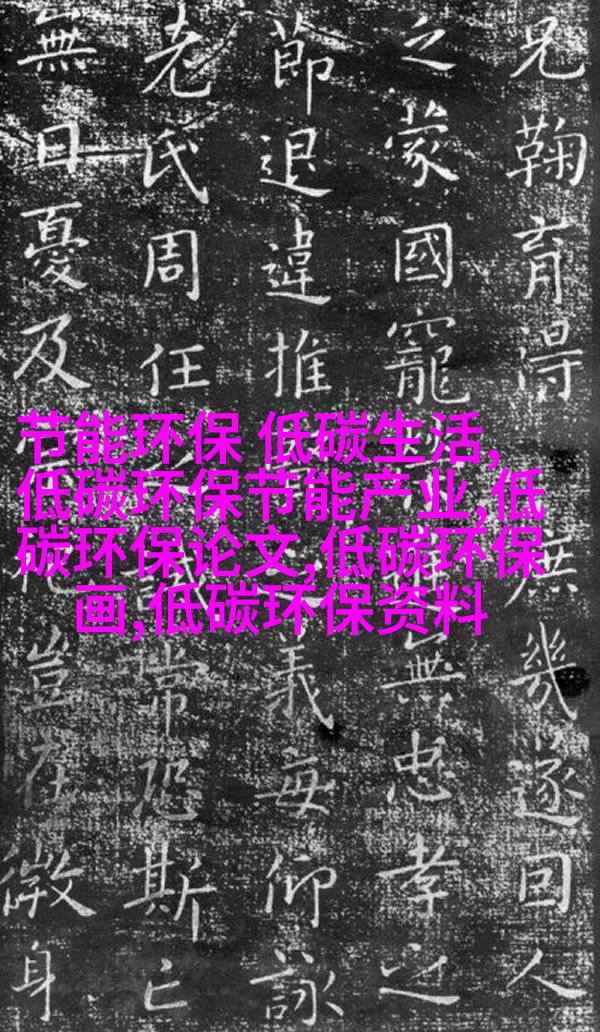 兄鞠育得無幾遂回人
之蒙國寵無忠孝之
節退違推義每仰詠
老氏周任誡常恐斯亡
無日憂及豈在微身
节能环保 低碳生活,
低碳环保节能产业,低
碳环保论文,低碳环保
画,低碳环保资料